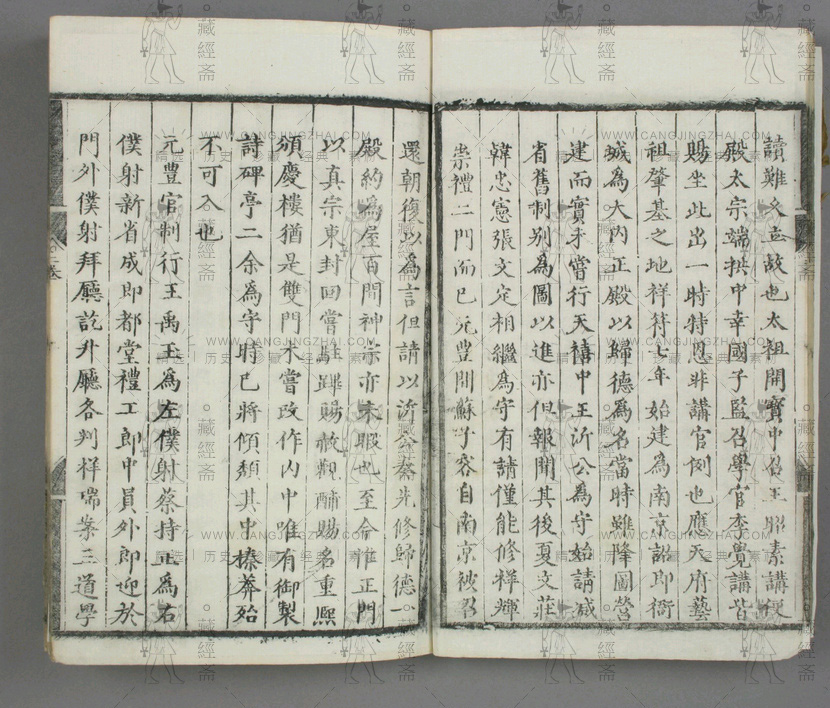 讀難久立故也太祖開寶中召王昭素講便
殿太宗端拱中幸國子監召學官李覺講皆
賜坐此出一時特恩非講官例也應天府藝
祖肇基之地祥符七年始建為南京詔即衙
城為大內正殿以歸德為名當時雖降圖營
建而實未嘗行天禧中王沂公為守始請减
省舊制別為圖以進亦但報聞其後夏文莊
韓忠憲張文定相繼為守有請僅能修祥輝
崇禮二門而已元豐間蘇子容自南京被召
還朝復以為言但請以沂公葺先修歸德一
殿約為屋百間神宗亦未暇也至今惟正門
以真宗東封回嘗駐蹕賜赦觀酺賜名重熙
頒慶樓猶是雙門未嘗改作內中唯有御製
詩碑亭二余為守時已將傾頽其中榛莽殆
不可入也
元豐官制行王禹玉為左僕射蔡持正為右
僕射新省成即都堂禮工郎中員外郎迎於
門外僕射拜廳訖升廳各判祥瑞案三道學
藏經斋
WWW.CANGJINGZHAI.COM
精选 | 历史 | 珍藏 | 经典 | 素斋